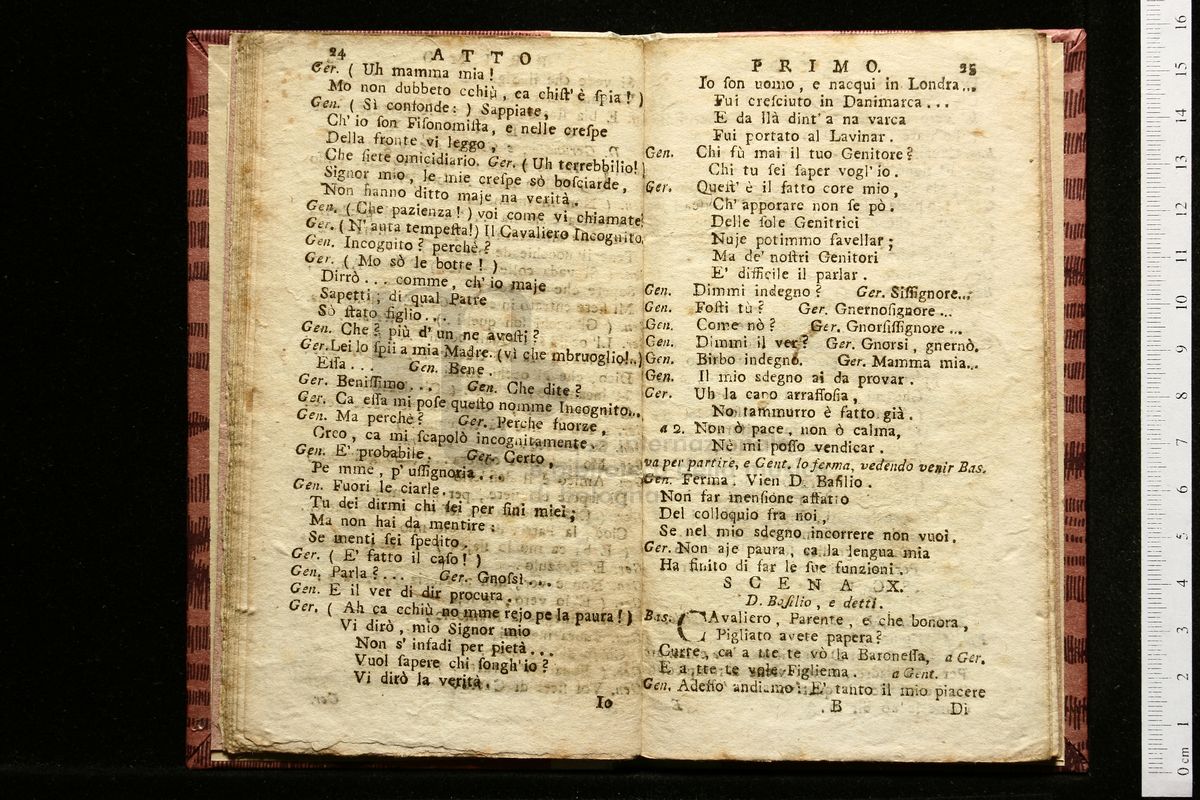 24 ATTO
Ger. ( Uh mamma mia!
Mo non dubbeto cchiù, ca chist' è spia! )
Gen. ( Si confonde: ) Sappiate,
Ch' io son Fisonomista, e nelle crespe
Della fronte vi leggo,
Che siete omicidiario. Ger. ( Uh terrebbilio! )
Signor mio, le mie crespe sò bosciarde,
Non hanno ditto maje na verità.
Gen. ( Che pazienza! ) voi come vi chiamate?
Ger. ( N' auta tempesta!) Il Cavaliero Incognito.
Gen. Incognito? perchè?
Ger. ( Mo sò le botte! )
Dirrò... comme, ch' io maje
Sapetti; di qual Patre
Sò stato figlio...
Gen. Che? più d' un ne avesti?
Ger. Lei lo spii a mia Madre. (vì che mbruoglio!..)
Essa... Gen. Bene.
Ger. Benissimo... Gen. Che dite?
Ger. Ca essa mi pose questo nomme Incognito...
Gen. Ma perchè? Ger. Perche fuorze,
Creo, ca mi scapolò incognitamente.
Gen. E' probabile. Ger. Certo,
Pe mme, p' ussignoria...
Gen. Fuori le ciarle.
Tu dei dirmi chi sei per fini miei;
Ma non hai da mentire:
Se menti sei spedito.
Ger. ( E' fatto il caso! )
Gen. Parla?... Ger. Gnossì...
Gen. E il ver di dir procura.
Ger. ( Ah ca cchiù no mme rejo pe la paura! )
Vi dirò, mio Signor mio
Non s' infadi per pietà...
Vuol sapere chi songh' io?
Vi dirò la verità.
Io
PRIMO. 25
Io son uomo, e nacqui in Londra...
Fui cresciuto in Danimarca...
E da llà dint' a na varca
Fui portato al Lavinar.
Gen. Chi fù mai il tuo Genitore?
Chi tu sei saper vogl' io.
Ger. Quest' è il fatto core mio,
Ch' apporare non se pò.
Delle sole Genitrici
Nuje potimmo favellar;
Ma de' nostri Genitori
E' difficile il parlar.
Gen. Dimmi indegno? Ger. Siffignore...
Gen. Fosti tù? Ger. Gnernosignore...
Gen. Come nò? Ger. Gnorsissignore...
Gen. Dimmi il ver? Ger. Gnorsi, gnernò.
Gen. Birbo indegno. Ger. Mamma mia...
Gen. Il mio sdegno ai da provar.
Ger. Uh la capo arrassosia,
No tammurro è fatto già.
a 2. Non ò pace, non ò calma,
Nè mi posso vendicar.
va per partire, e Gent. lo ferma, vedendo venir Bas.
Gen. Ferma: Vien D. Basilio.
Non far mensione affatto
Del colloquio fra noi,
Se nel mio sdegno incorrere non vuoi.
Ger. Non aje paura, ca la lengua mia
Ha finito di far le sue funzioni.
SCENA X.
D. Basilio, e detti.
Bas. CAvaliero, Parente, e che bonora,
Pigliato avete papera?
Curre, ca' a tte te vò la Baronessa, a Ger.
E a tte te vole Figliema. a Gent.
Gen. Adesso andiamo: E' tanto il mio piacere
B Di
0 cm 1 2 3 4 5 6 7 8 9 10 11 12 13 14 15 16